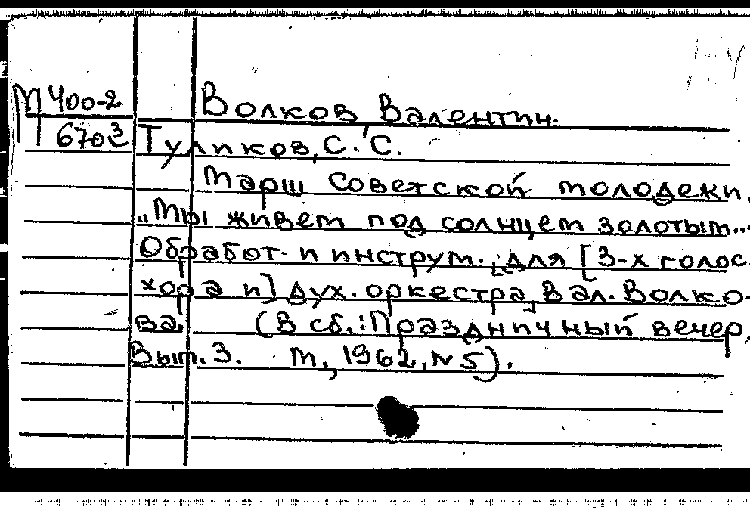 М 400-2
6703
Волков Валентин.
Туликов, С. С.
Марш Советской молодежи.
„Мы живем под солнцем золотым...
Обработ. и инструм. для [3-х голос.
хора и] дух. оркестра Вал. Волко-
ва. (В сб.: Праздничный вечер,
Вып. 3. М., 1962, № 5).